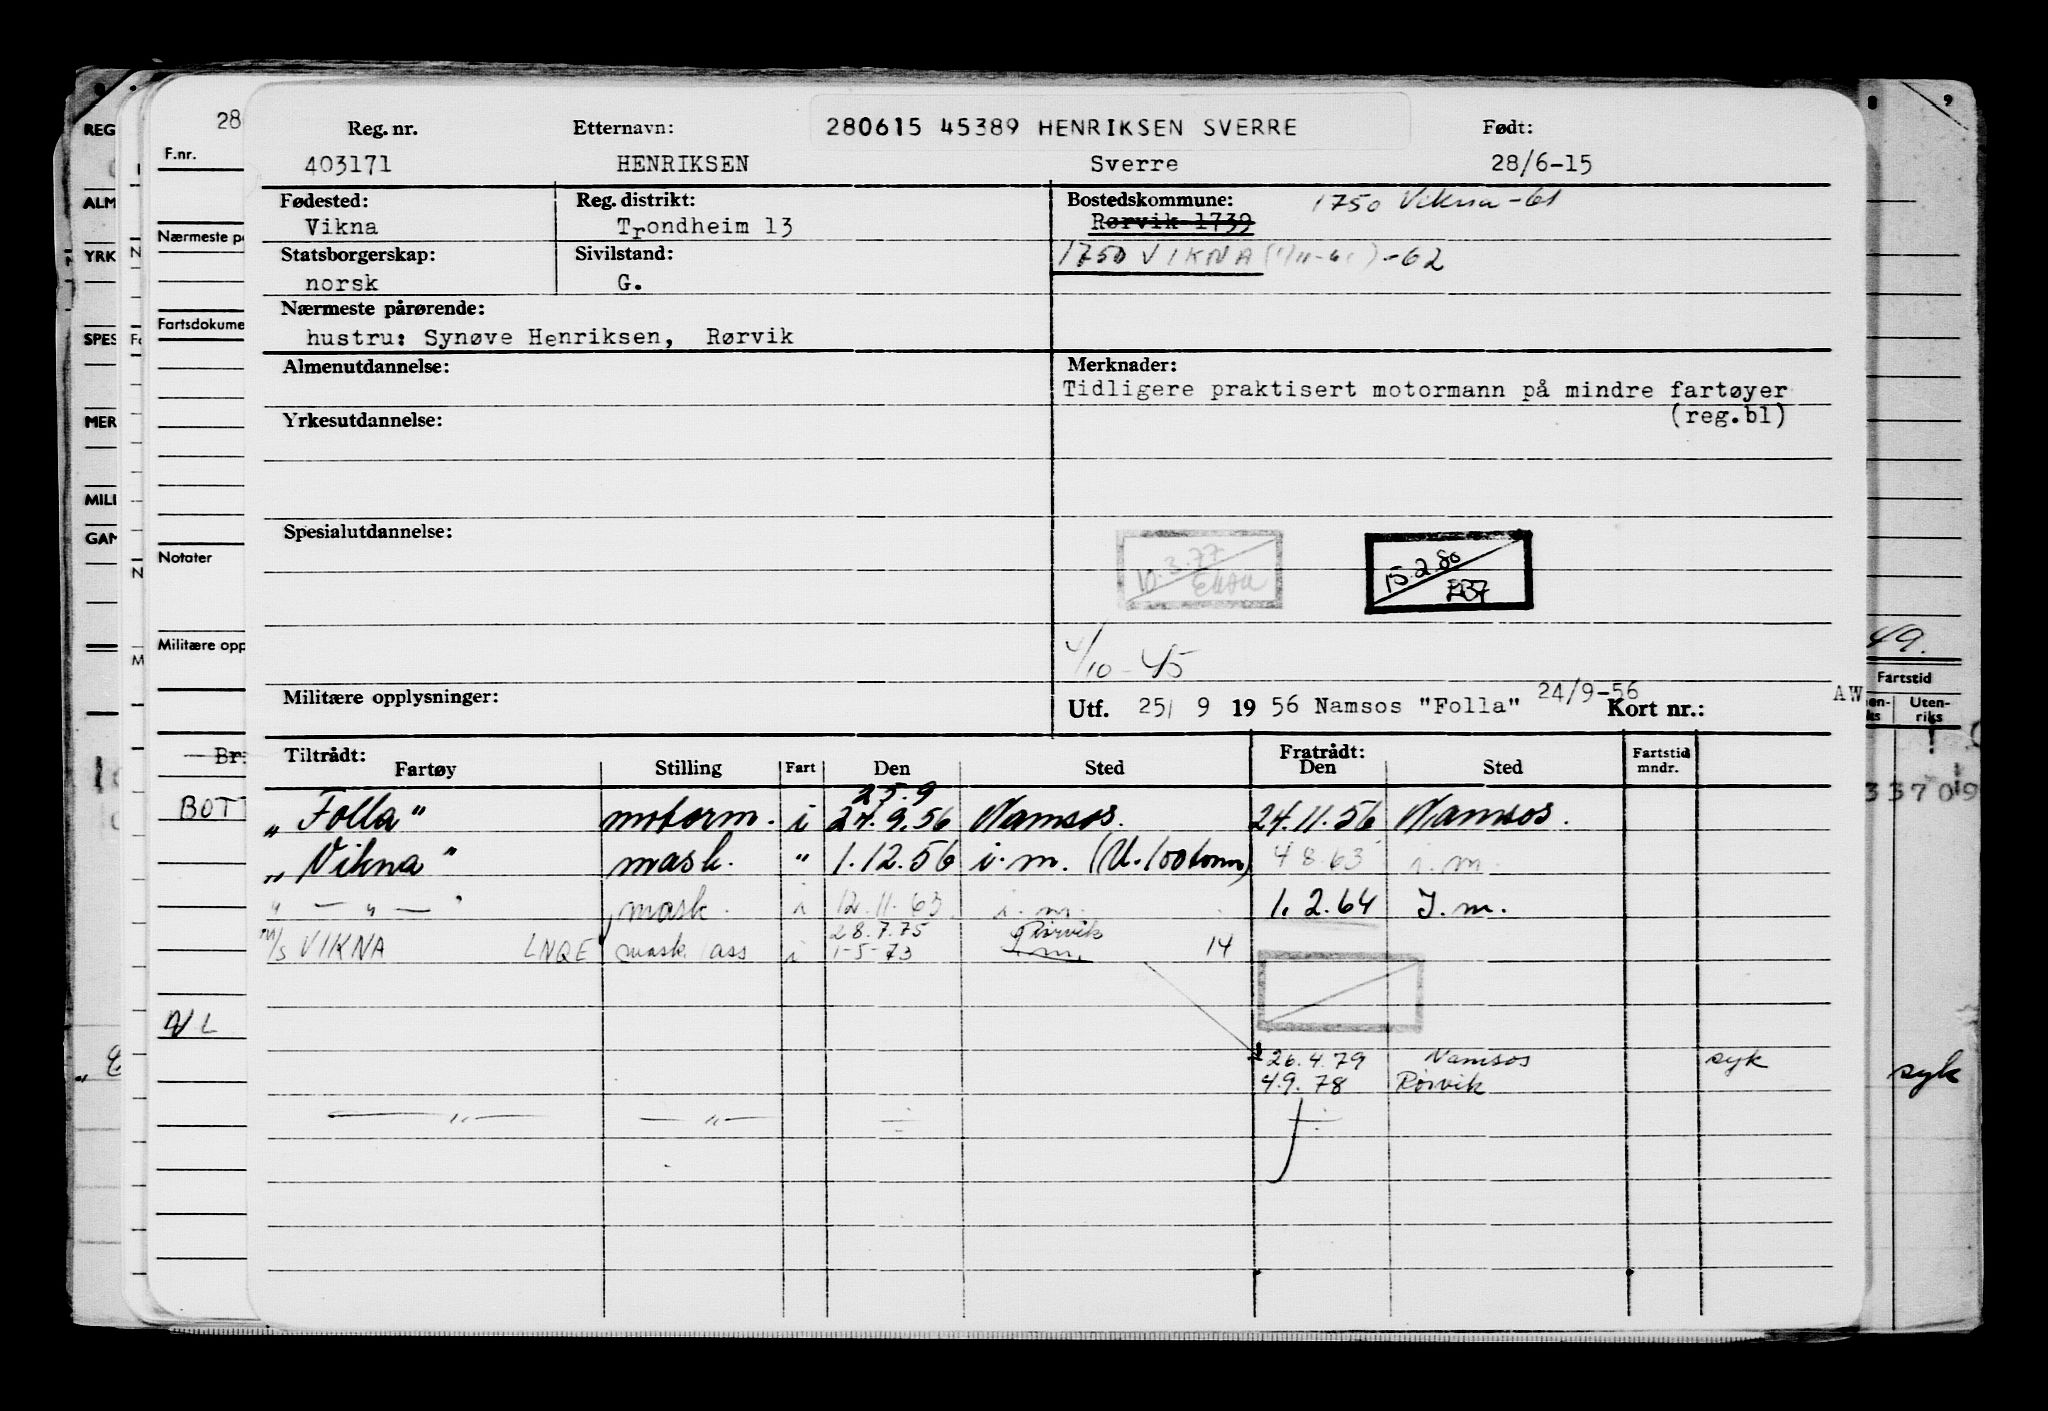 280615 45389 HENRIKSEN SVERRE
Reg. nr. Etternavn: Født:
403171 HENRIKSEN Sverre 28/6-15
Fødested: Reg. distrikt: Bostedskommune: 1750 Vikna -61
Vikna Trondheim 13 Rørvik 1739
Statsborgerskap: Sivilstand: 1750 VIKNA -62
norsk G.
Nærmeste pårørende:
hustru: Synøve Henriksen, Rørvik
Almenutdannelse: Merknader:
Tidligere praktisert motormann på mindre fartøyer
(reg.bl)
Yrkesutdannelse:
Spesialutdannelse:
10.3.77
15.2.80
4/10-45
Militære opplysninger:
Utf. 25/ 9 19 56 Namsos "Folla" 24/9-56 Kort nr.: AW
Tiltrådt: Fratrådt:
Fartøy Stilling Fart Den Sted Den Sted Fartstid mndr.
25.9
„Folla" motorm. i 24.9.56 Namsos. 24.11.56 Namsos.
„Vikna" mask. " 1.12.56 i.m. (U. 100 tonn) 4 8.63 i.m.
" — " — " mask. i 12.11.63 i.m. 1.2.64 I.m.
28.7.75 Rørvik
M/S VIKNA LNQE mask ass i 1-5-73 i.m. 14
26.4.79 Namsos syk
4.9.78 Rørvik
— " — — " —
28
F.nr.
Nærmeste på
Fartsdokume
Notater
Militære opp
Br
BOT
REG
ALM
YRK
SPES
MER
MILI
GAM
49.
Fartstid
Uten-
riks
33709
syk